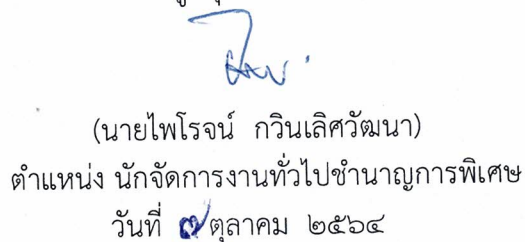 (นายไพโรจน์ กวินเลิศวัฒนา)
ตำแหน่ง นักจัดการงานทั่วไปชำนาญการพิเศษ
วันที่ ๗ ตุลาคม ๒๕๖๔